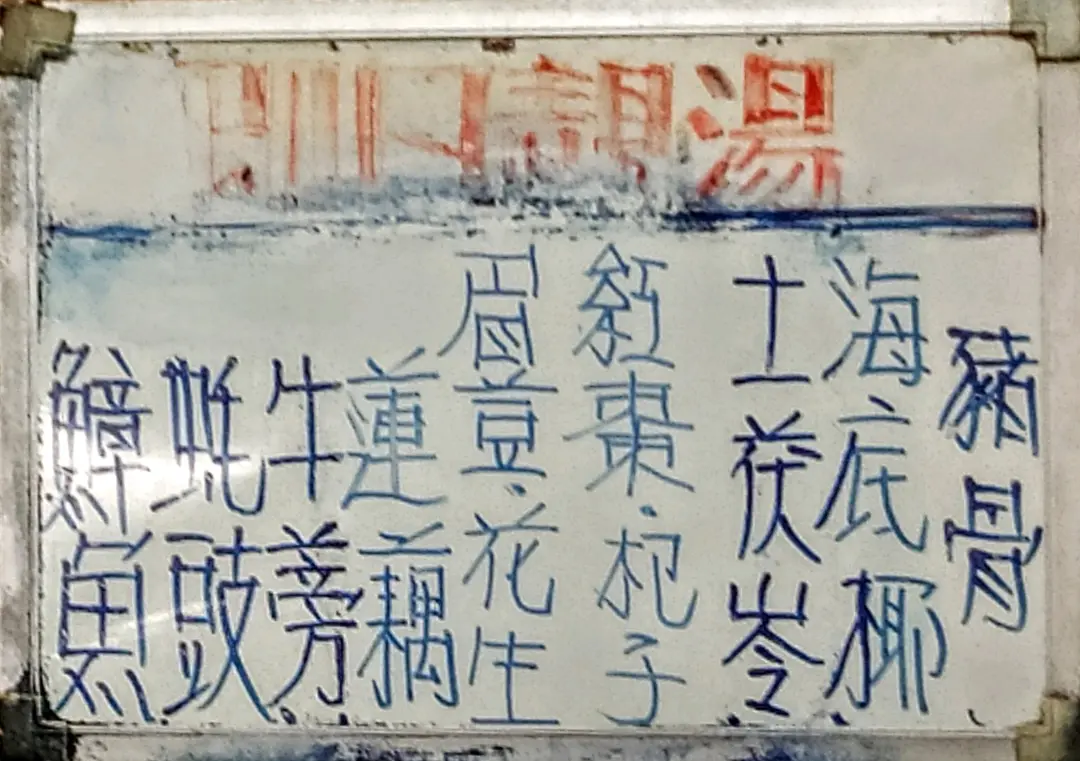 靚湯
豬骨、
海底椰、
土茯苓、
紅棗．杞子
眉豆．花生
蓮藕
牛蒡、
蚝豉
鱆魚